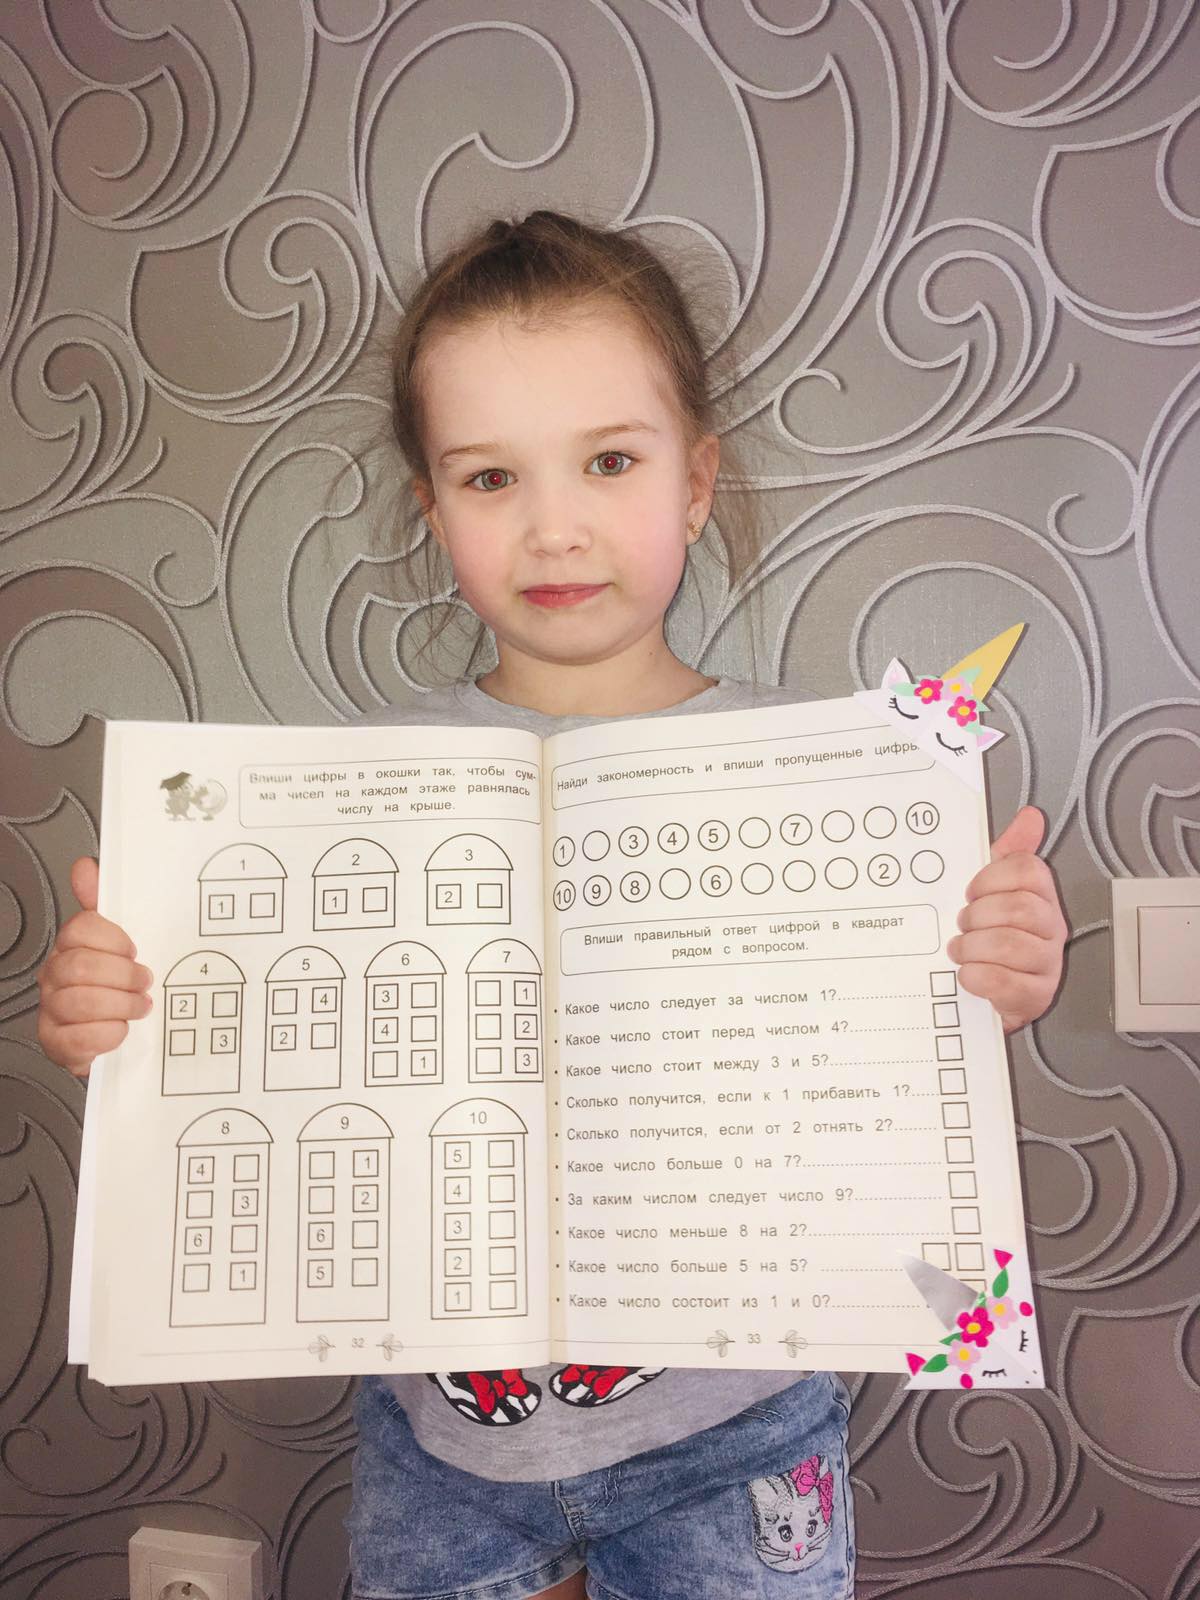 Впиши цифры в окошки так, чтобы сум-
ма чисел на каждом этаже равнялась
числу на крыше.
1 2 3
1
1
2
4 5 6 7
2
4
3
1
3
2
4
2
1
3
8 9 10
4
1
5
3
2
4
6
6
3
1
5
2
1
32
Найди закономерность и впиши пропущенные цифры
1 3 4 5 7 10
10 9 8 6 2
Впиши правильный ответ цифрой в квадрат
рядом с вопросом.
• Какое число следует за числом 1?
• Какое число стоит перед числом 4?
• Какое число стоит между 3 и 5?
• Сколько получится, если к 1 прибавить 1?
• Сколько получится, если от 2 отнять 2?
• Какое число больше 0 на 7?
• За каким числом следует число 9?
• Какое число меньше 8 на 2?
• Какое число больше 5 на 5?
• Какое число состоит из 1 и 0?
33